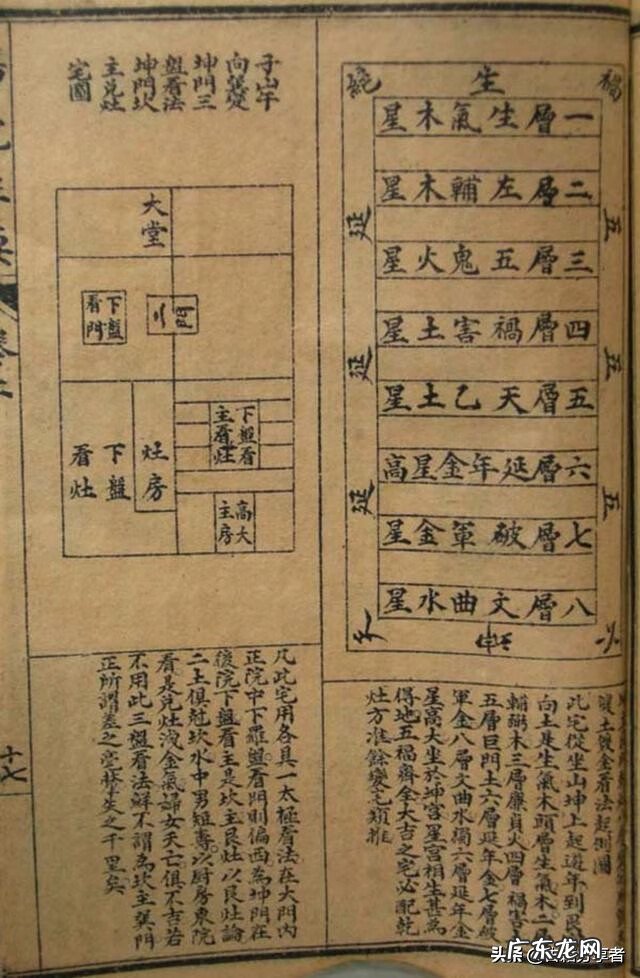 禍 生 絕
一層生氣木星
二層左輔木星
三層五鬼火星
四層禍害土星
五層天乙土星
六層延年金星高
七層破軍金星
八層文曲水星
五
五
五
延
延
延
看法起例圖
此宅從坐山坤上起遊年到艮
向土是生氣木頭層生氣木二層
輔弼木三層廉貞火四層禍害土
五層巨門土六層延年金七層破
軍金八層文曲水獨六層延年金
星高大坐於坤宮星宮相生甚為
得地五福齊全大吉之宅必配乾
灶方准餘變宅類推
子山午
向巽變
坤門三
盤看法
坤門坎
主兌灶
宅圖
大堂
下盤
看門
二門
下盤看
主看灶
灶房
下盤
看灶
高大
主房
凡此宅用各具一太極看法在大門內
正院中下羅盤看門則偏西為坤門在
後院下盤看主是坎主艮灶以艮灶論
二土俱剋坎水中男短壽以厨房東院
看是兌灶洩金氣婦女夭亡俱不吉若
不用此三盤看法鮮不謂為坎主巽門
正所謂差之毫釐失之千里矣
十七
头条
享者
广东龙网